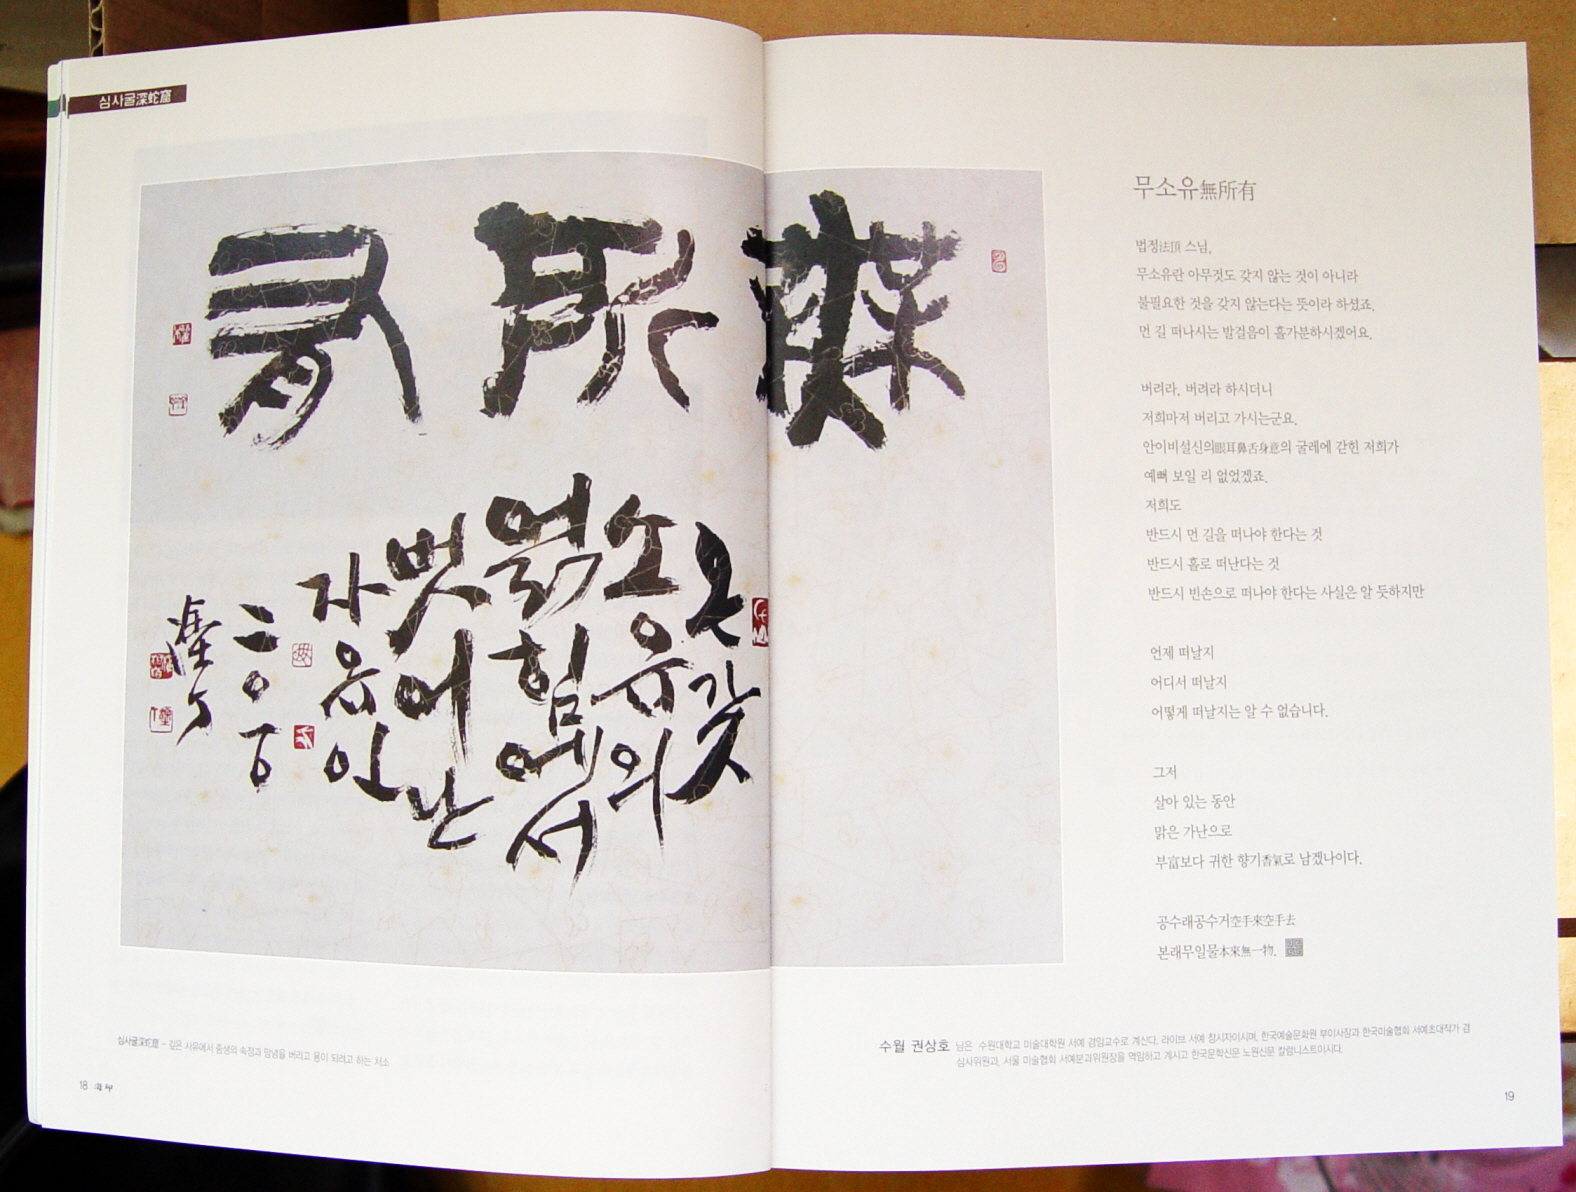 심사굴深蛇窟
無所有
온갖
소유의
얽힘에서
벗어난
자유인
二〇一〇
무소유無所有
법정法頂 스님,
무소유란 아무것도 갖지 않는 것이 아니라
불필요한 것을 갖지 않는다는 뜻이라 하셨죠.
먼 길 떠나시는 발걸음이 홀가분하시겠어요.
버려라, 버려라 하시더니
저희마저 버리고 가시는군요.
안이비설신의眼耳鼻舌身意의 굴레에 갇힌 저희가
예뻐 보일 리 없었겠죠.
저희도
반드시 먼 길을 떠나야 한다는 것
반드시 홀로 떠난다는 것
반드시 빈손으로 떠나야 한다는 사실은 알 듯하지만
언제 떠날지
어디서 떠날지
어떻게 떠날지는 알 수 없습니다.
그저
살아 있는 동안
맑은 가난으로
부富보다 귀한 향기香氣로 남겠나이다.
공수래공수거空手來空手去
본래무일물本來無一物.
심사굴深蛇窟 - 깊은 사유에서 중생의 속정과 망념을 버리고 용이 되려고 하는 처소
18
수월 권상호 님은 수원대학교 미술대학원 서예 겸임교수로 계신다. 라이브 서예 창시자이시며, 한국예술문화원 부이사장과 한국미술협회 서예초대작가 겸
심사위원과, 서울 미술협회 서예분과위원장을 역임하고 계시고 한국문학신문 노원신문 칼럼니스트이시다.
19